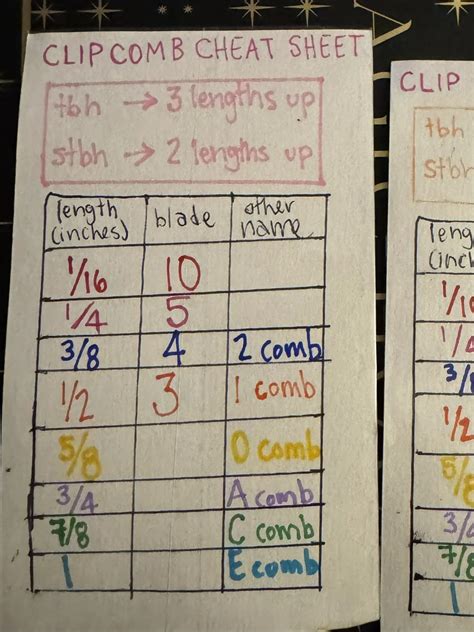 CLIP COMB CHEAT SHEET
tbh → 3 lengths up
stbh → 2 lengths up
length (inches) blade other name
1/16 10
1/4 5
3/8 4 2 comb
1/2 3 1 comb
5/8 0 comb
3/4 A comb
7/8 C comb
1 E comb
CLIP
tbh
stbh
leng
(inch
1/16
1/4
3/8
1/2
5/8
3/4
7/8
1